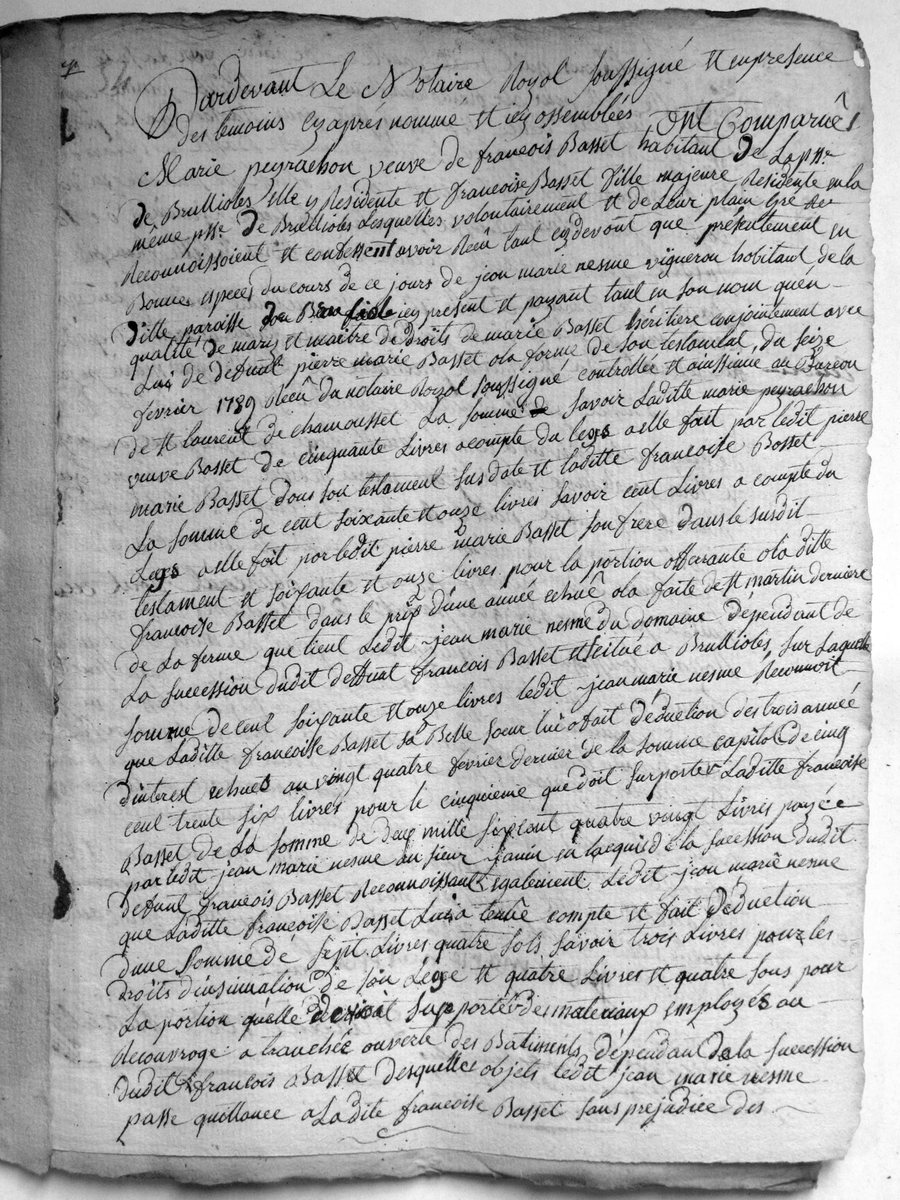 Pardevant Le Notaire Royal soussigné et en presence
des temoins cy aprés nommé et icy assemblées ont comparuë
Marie peyrachon veuve de francois Basset habitant de La psse
de Brullioles elle y Residente et francoise Basset fille majeure Residente en la
même psse de Brullioles Lesquelles volontairement et de Leur plain gré
Reconnoissoient et confessent avoir Reçû tant cydevant que présentement en
Bonnes especes du cours de ce jours de jean marie nesme vigneron habitant de la
ditte paroisse de icy present et payant tant en son nom qu'en
qualité de maris et maitre de droits de marie Basset héritiere conjointement avec
Lui de defunt pierre marie Basset a la forme de son testament, du seize
fevrier 1789 Recû du notaire Royal soussigné controllée et insinuée au Bureau
de st laurent de chamousset La somme de savoir Laditte marie peyrachon
veuve Basset de cinquante Livres acompte du legs a elle fait par ledit pierre
marie Basset dans son testament susdaté et laditte francoise Basset
La somme de cent soixante et onze livres savoir cent Livres a compte du
Legs a elle fait par ledit pierre marie Basset son frere dans le susdit
testament et soixante et onze livres pour la portion afferante a la ditte
francoise Basset dans le prix d'une année echuë a la faite de st martin derniere
de La ferme que tient Ledit jean marie nesme du domaine dépendant de
La succession dudit defunt françois Basset et scitué a Brullioles, sur Laquelle
somme de cent soixante et onze livres ledit jean marie nesme Reconnoit
que Laditte francoise Basset sa Belle soeur lui a fait déduction des trois année
d'interest echues au vingt quatre fevrier dernier de la somme capital de cinq
cent trente six livres pour le cinquieme que doit suporter Laditte francoise
Basset de La somme de deux mille six cent quatre vingt Livres payée
par ledit jean marie nesme au sieur janin en lacquis de la sucession dudit
defunt francois Basset Reconnoissant également Ledit jean marie nesme
que Laditte francoise Basset Lui a tenûe compte et fait déduction
d'une somme de sept Livres quatre sols savoir trois Livres pour les
droits d'insinuation de son Legs et quatre Livres et quatre sous pour
La portion qu'elle supporté des materiaux employés au
Recouvrage a tranchée ouverte des Batiments dépendant de la succession
dudit francois Basset desquelles objets ledit jean marie nesme
passe quittance a Ladite francoise Basset sans prejudice des